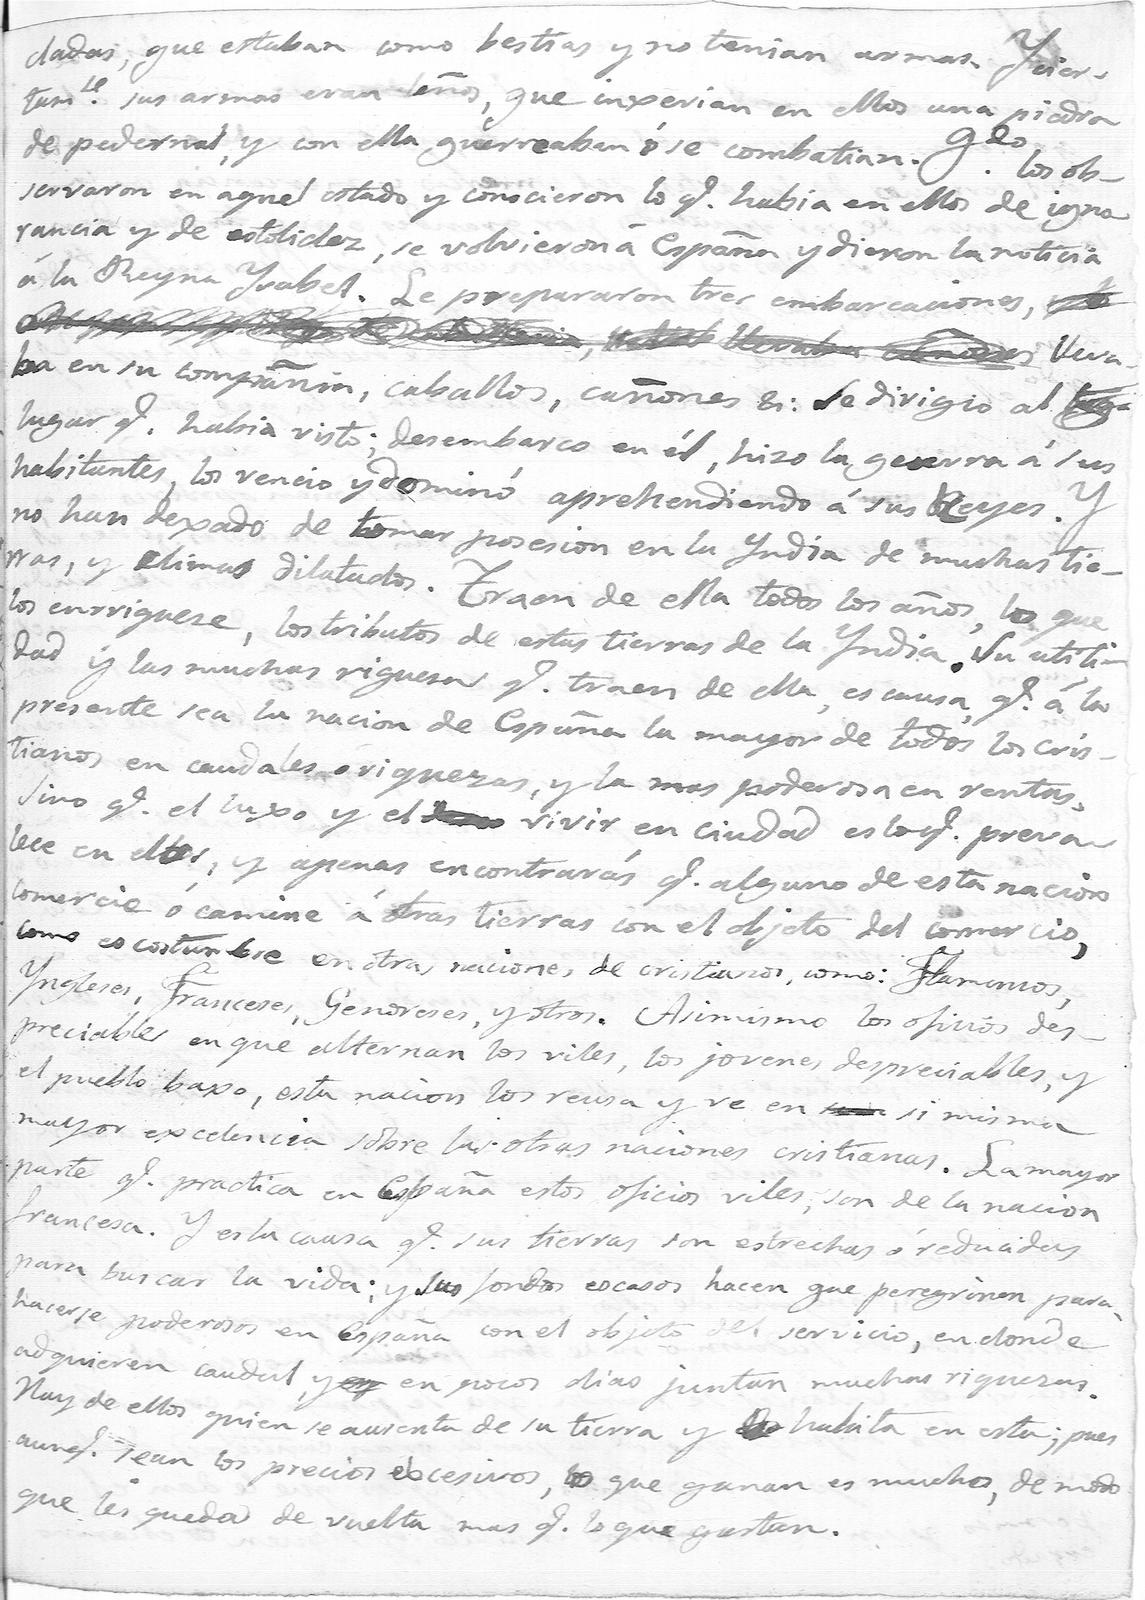 dadas, que estaban como bestias y no tenian armas. Y cier-
tamte. sus armas eran leños, que inxerian en ellos una piedra
de pedernal, y con ella guerreaban ó se combatian. Qdo. los ob-
servaron en aquel estado y conocieron lo q. habia en ellos de igno
rancia y de estolidez, se volvieron á España y dieron la noticia
á la Reyna Ysabel. Le prepararon tres embarcaciones,
lleva-
ba en su compañia, caballos, cañones &: Se dirigio al
lugar q. habia visto; desembarco en él, hizo la guerra á sus
habitantes, los vencio y dominó aprehendiendo á sus Reyes. Y
no han dexado de tomar posesion en la Yndia de muchas tie-
rras, y climas dilatados. Traen de ella todos los años, lo que
los enrriquese, los tributos de estas tierras de la Yndia. Su utili-
dad y las muchas riquesas q. traen de ella, es causa, q. á la
presente sea la nacion de España la mayor de todos los cris-
tianos en caudales ó riquezas, y la mas poderosa en rentas,
Sino q. el luxo y el vivir en ciudad es lo q. preva-
lece en ellos, y apenas encontrarás q. alguno de esta nacion
comercie ó camine á otras tierras con el objeto del comercio,
como es costumbre en otras naciones de cristianos, como: Flamencos,
Yngleses, Franceses, Genoveses, y otros. Asimismo los oficios des-
preciables en que alternan los viles, los jovenes despreciables, y
el pueblo baxo, esta nacion los reusa y ve en si misma
mayor excelencia sobre las otras naciones cristianas. La mayor
parte q. practica en España estos oficios viles, son de la nacion
francesa. Y es la causa q. sus tierras son estrechas ó reducidas
para buscar la vida; y sus fondos escasos hacen que peregrinen para
hacerse poderosos en España con el objeto del servicio, en donde
adquieren caudal, y en pocos dias juntan muchas riquezas.
Hay de ellos quien se ausenta de su tierra y habita en esta; pues
aunq. sean los precios excesivos, lo que ganan es mucho, de modo
que les queda de vuelta mas q. lo que gastan.